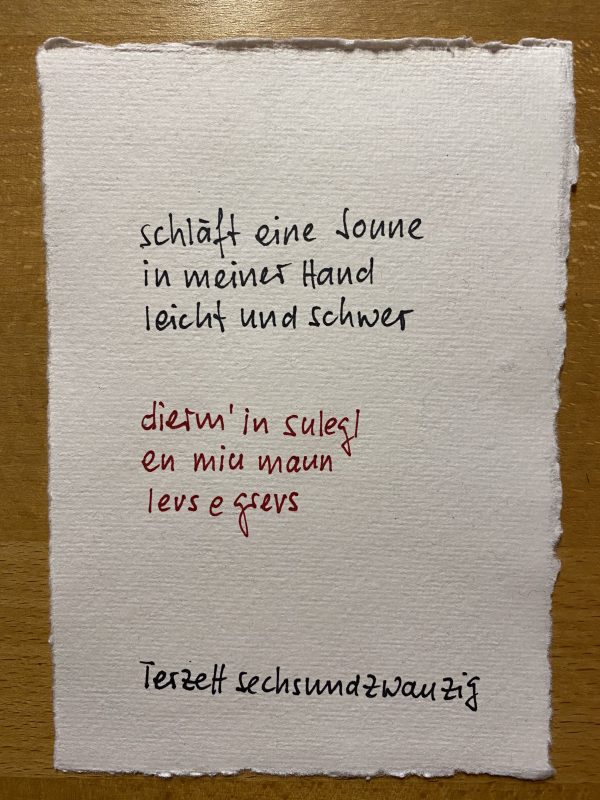 schläft eine Sonne
in meiner Hand
leicht und schwer
dierm' in sulegl
en miu maun
levs e grevs
Terzett sechsundzwanzig